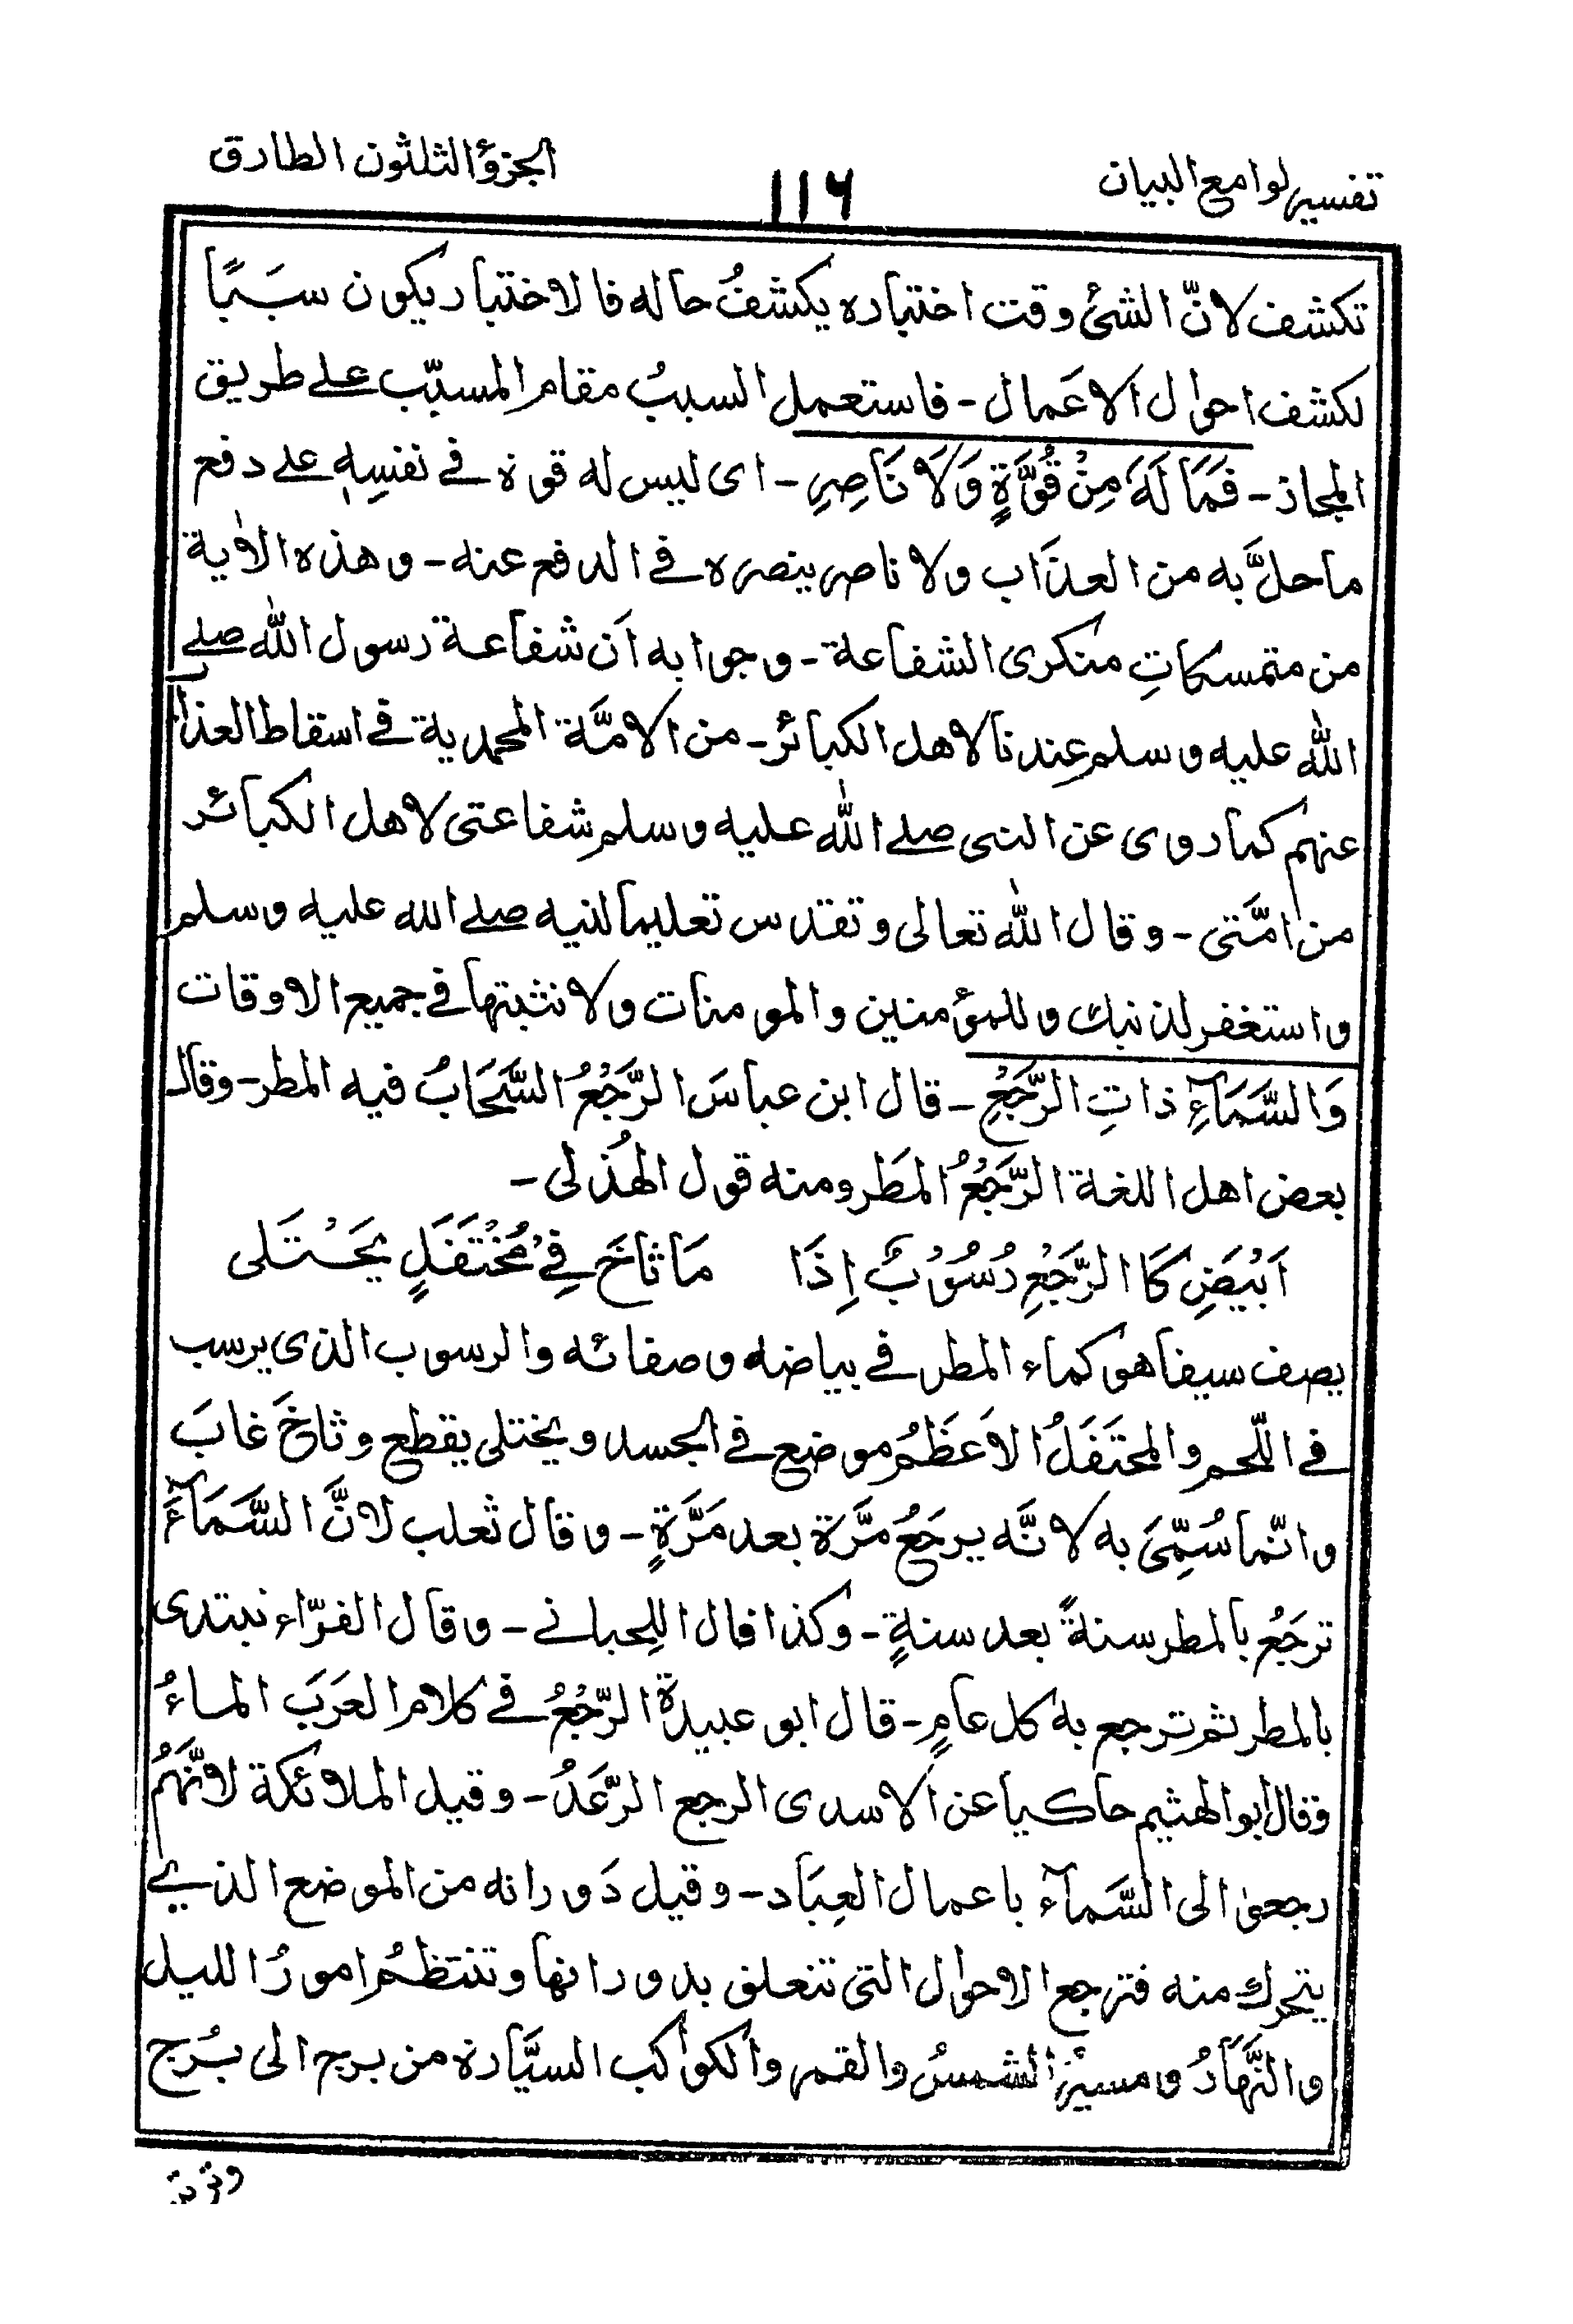 تفسير لوامع البيان
١١٦
الجزؤ الثلثون الطارق
تكشف لانّ الشئ وقت اختباره يكشفُ حاله فالاختبار يكون سبَبًا
لكشف احوال الاعَمال - فاستعمل السببُ مقام المسبّب علے طريق
المجاز - فَمَا لَهَ مِنْ قُوَّةٍ وَلَا نَاصِرٍ - اى ليس له قوة فے نفسِهٖ علے دفع
ما حلَّ به من العذَاب ولا ناصر ينصره فے الدفع عنه - وهذه الاٰية
من متمسكاتِ منكرى الشفاعة - وجوابه اَن شفاعة رسول اللّٰه صلے
اللّٰه عليه وسلم عندنا لاهل الكبائر - من الامَّة المحمدية فے اسقاط العذاب
عنهم كما روى عن النبى صلے اللّٰه عليه وسلم شفاعتى لاهل الكبائر
من امَّتى - وقال اللّٰه تعالى وتقدس تعليما لنبيه صلے الله عليه وسلم
واستغفر لذنبك وللمؤمنين والمومنات ولا نثبتها فے جميع الاوقات
وَالسَّمَآءِ ذاتِ الرَّجْعِ - قال ابن عباسَ الرَّجْعُ السَّحَابُ فيه المطر - وقال
بعض اهل اللغة الرَّجْعُ المَطر ومنه قول الهُذلى -
اَبْيَضِ كَا الرَّجْعِ رُسُوْبٌ اِذَا مَا ثاخَ فِےْ مُحْتَفَلٍ يَخْتَلى
يصف سيفا هو كماء المطر فے بياضه وصفائه والرسوب الذى يرسب
فے اللّحم والمحتَفَلُ الاَعَظَمُ موضع فے الجسد ويختلى يقطع وثاخَ غابَ
وانّما سُمِّىَ به لانَّه يرجَعُ مرَّة بعد مَرَّةٍ - وقال ثعلب لانَّ السَّمَآءَ
ترجَعُ بالمطر سنةً بعد سنةٍ - وكذا قال اللِحيانے - وقال الفرّاء نبتدى
بالمطر ثم ترجع به كل عامٍ - قال ابو عبيدة الرّجْعُ فے كلام العَرَبَ الماءُ
وقال ابو الهثيم حاكيا عن الاسدى الرجع الرَّعَدُ - وقيل الملائكة لانَّهُم
رجعوا الى السَّمآء باعمال العِبَاد - وقيل دَورانه من الموضع الذے
يتحرك منه فترجع الاحوال التى تتعلق بدورانها وتنتظمُ امورُ الليل
والنَّهَارُ ومسيرُ الشمسُ والقمر والكواكب السيَّارة من برج الى بُرج